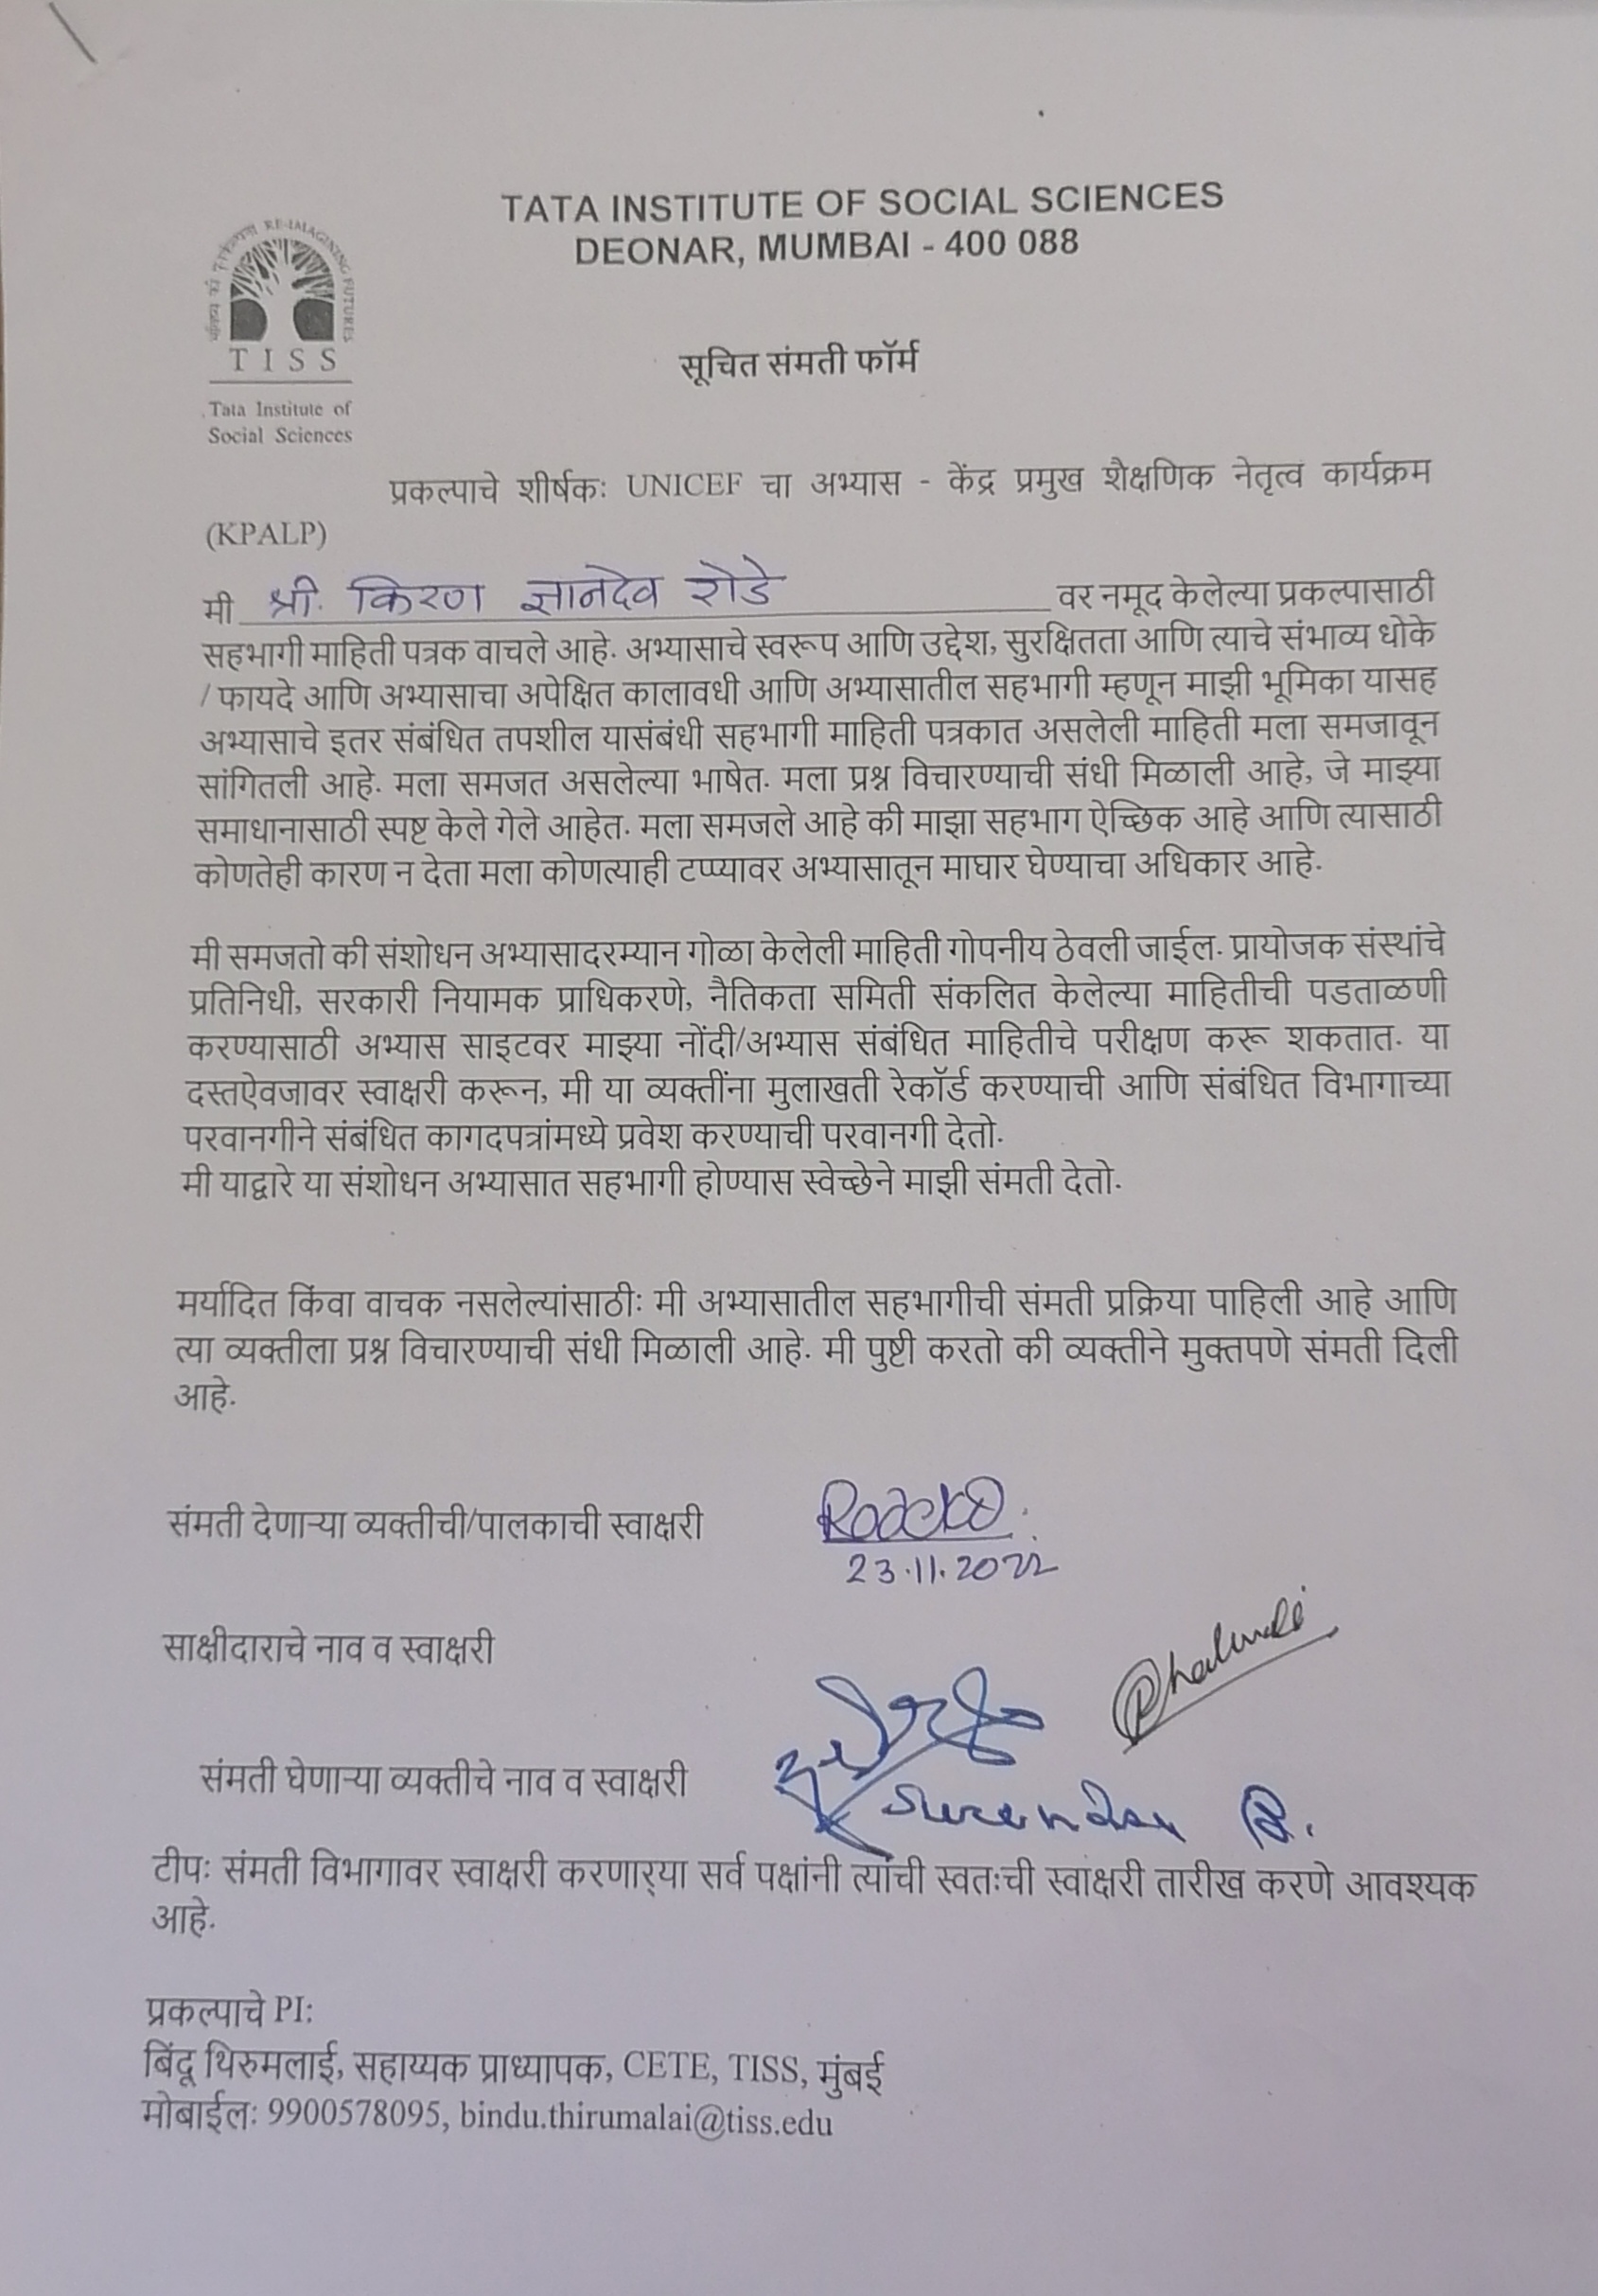 TATA INSTITUTE OF SOCIAL SCIENCES
DEONAR, MUMBAI - 400 088
RE-IMAGINING FUTURES
TISS
Tata Institute of
Social Sciences
सूचित संमती फॉर्म
प्रकल्पाचे शीर्षकः UNICEF चा अभ्यास - केंद्र प्रमुख शैक्षणिक नेतृत्व कार्यक्रम
(KPALP)
मी श्री. किरण ज्ञानदेव रोडे वर नमूद केलेल्या प्रकल्पासाठी
सहभागी माहिती पत्रक वाचले आहे. अभ्यासाचे स्वरूप आणि उद्देश, सुरक्षितता आणि त्याचे संभाव्य धोके
/ फायदे आणि अभ्यासाचा अपेक्षित कालावधी आणि अभ्यासातील सहभागी म्हणून माझी भूमिका यासह
अभ्यासाचे इतर संबंधित तपशील यासंबंधी सहभागी माहिती पत्रकात असलेली माहिती मला समजावून
सांगितली आहे. मला समजत असलेल्या भाषेत. मला प्रश्न विचारण्याची संधी मिळाली आहे, जे माझ्या
समाधानासाठी स्पष्ट केले गेले आहेत. मला समजले आहे की माझा सहभाग ऐच्छिक आहे आणि त्यासाठी
कोणतेही कारण न देता मला कोणत्याही टप्प्यावर अभ्यासातून माघार घेण्याचा अधिकार आहे.
मी समजतो की संशोधन अभ्यासादरम्यान गोळा केलेली माहिती गोपनीय ठेवली जाईल. प्रायोजक संस्थांचे
प्रतिनिधी, सरकारी नियामक प्राधिकरणे, नैतिकता समिती संकलित केलेल्या माहितीची पडताळणी
करण्यासाठी अभ्यास साइटवर माझ्या नोंदी/अभ्यास संबंधित माहितीचे परीक्षण करू शकतात. या
दस्तऐवजावर स्वाक्षरी करून, मी या व्यक्तींना मुलाखती रेकॉर्ड करण्याची आणि संबंधित विभागाच्या
परवानगीने संबंधित कागदपत्रांमध्ये प्रवेश करण्याची परवानगी देतो.
मी याद्वारे या संशोधन अभ्यासात सहभागी होण्यास स्वेच्छेने माझी संमती देतो.
मर्यादित किंवा वाचक नसलेल्यांसाठीः मी अभ्यासातील सहभागीची संमती प्रक्रिया पाहिली आहे आणि
त्या व्यक्तीला प्रश्न विचारण्याची संधी मिळाली आहे. मी पुष्टी करतो की व्यक्तीने मुक्तपणे संमती दिली
आहे.
संमती देणाऱ्या व्यक्तीची/पालकाची स्वाक्षरी
23.11.2022
साक्षीदाराचे नाव व स्वाक्षरी
संमती घेणाऱ्या व्यक्तीचे नाव व स्वाक्षरी
टीपः संमती विभागावर स्वाक्षरी करणार्‍या सर्व पक्षांनी त्यांची स्वतःची स्वाक्षरी तारीख करणे आवश्यक
आहे.
प्रकल्पाचे PI:
बिंदू थिरुमलाई, सहाय्यक प्राध्यापक, CETE, TISS, मुंबई
मोबाईलः 9900578095, bindu.thirumalai@tiss.edu